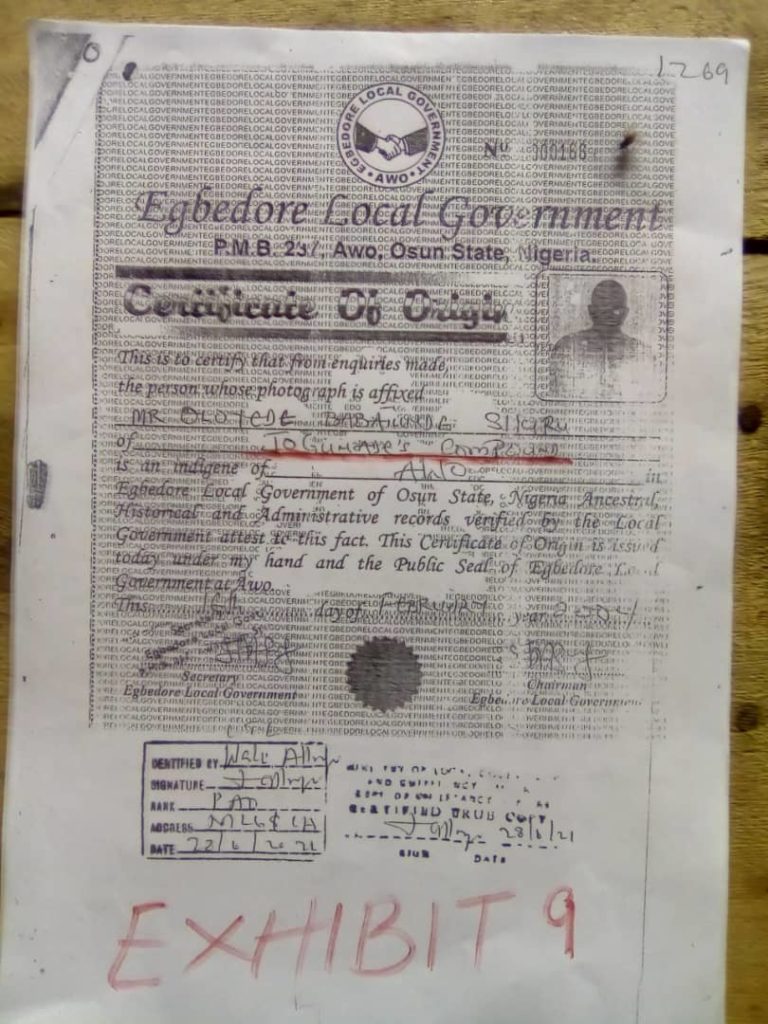 1269
EGBEDORE LOCAL GOVERNMENT
AWO
Nº 000166
Egbedore Local Government
P.M.B. 237, Awo, Osun State, Nigeria.
Certificate Of Origin
This is to certify that from enquiries made,
the person whose photograph is affixed
MR OLOYEDE BABATUNDE
of COMPOUND
is an indigene of AWO in
Egbedore Local Government of Osun State, Nigeria Ancestral,
Historical and Administrative records verified by the Local
Government attest to this fact. This Certificate of Origin is issued
today under my hand and the Public Seal of Egbedore Local
Government at Awo.
This day of FEBRUARY year 2004
Secretary
Egbedore Local Government
Chairman
Egbedore Local Government
IDENTIFIED BY Wale
SIGNATURE
RANK PAO
ADDRESS
DATE 22/6/2021
CERTIFIED TRUE COPY
28/6/21
SIGN DATE
EXHIBIT 9